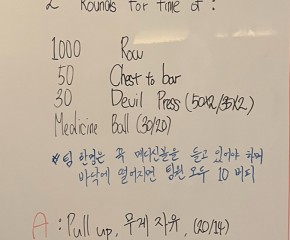 2 Rounds for time of :
1000 Row
50 Chest to bar
30 Devil Press (50x2/35x2)
Medicine Ball (30/20)
*팀 한명은 꼭 메디신볼을 들고 있어야 하며
바닥에 떨어지면 팀원 모두 10 버피
A : Pull up, 무게 자유, (20/14)